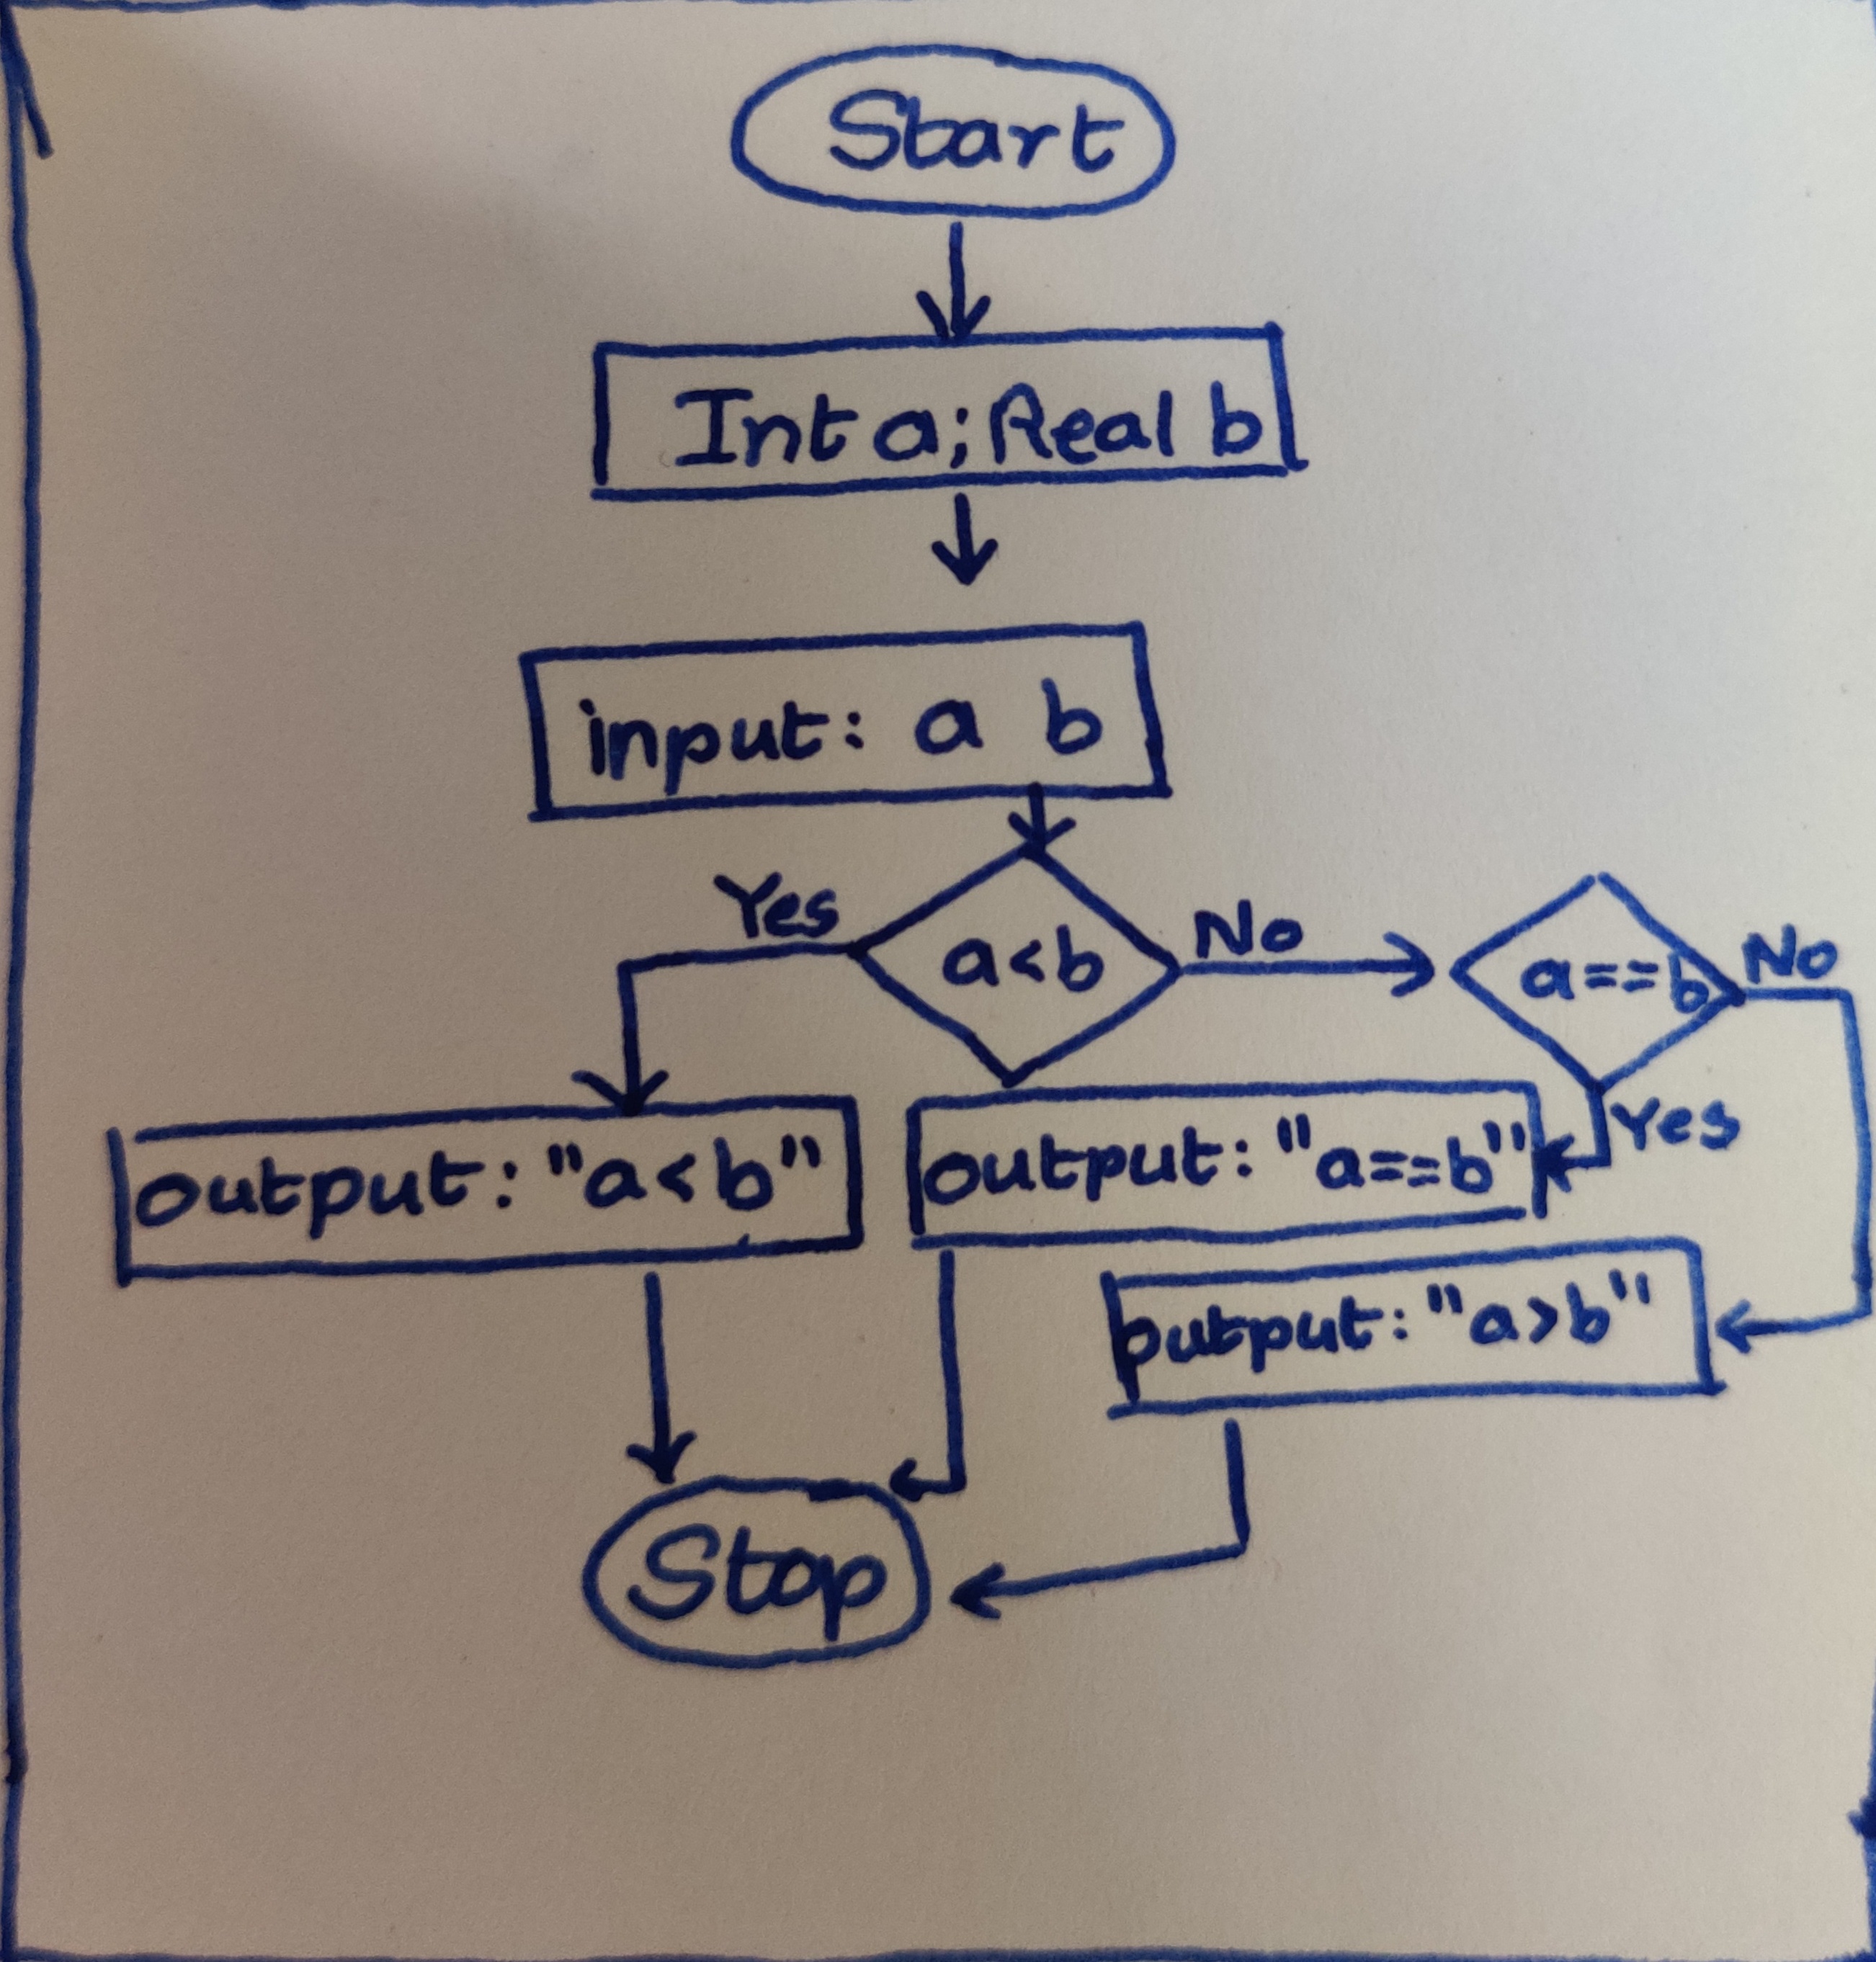 Start
Int a; Real b
input: a b
Yes
a<b
No
a==b
No
output: "a<b"
output: "a==b"
Yes
output: "a>b"
Stop